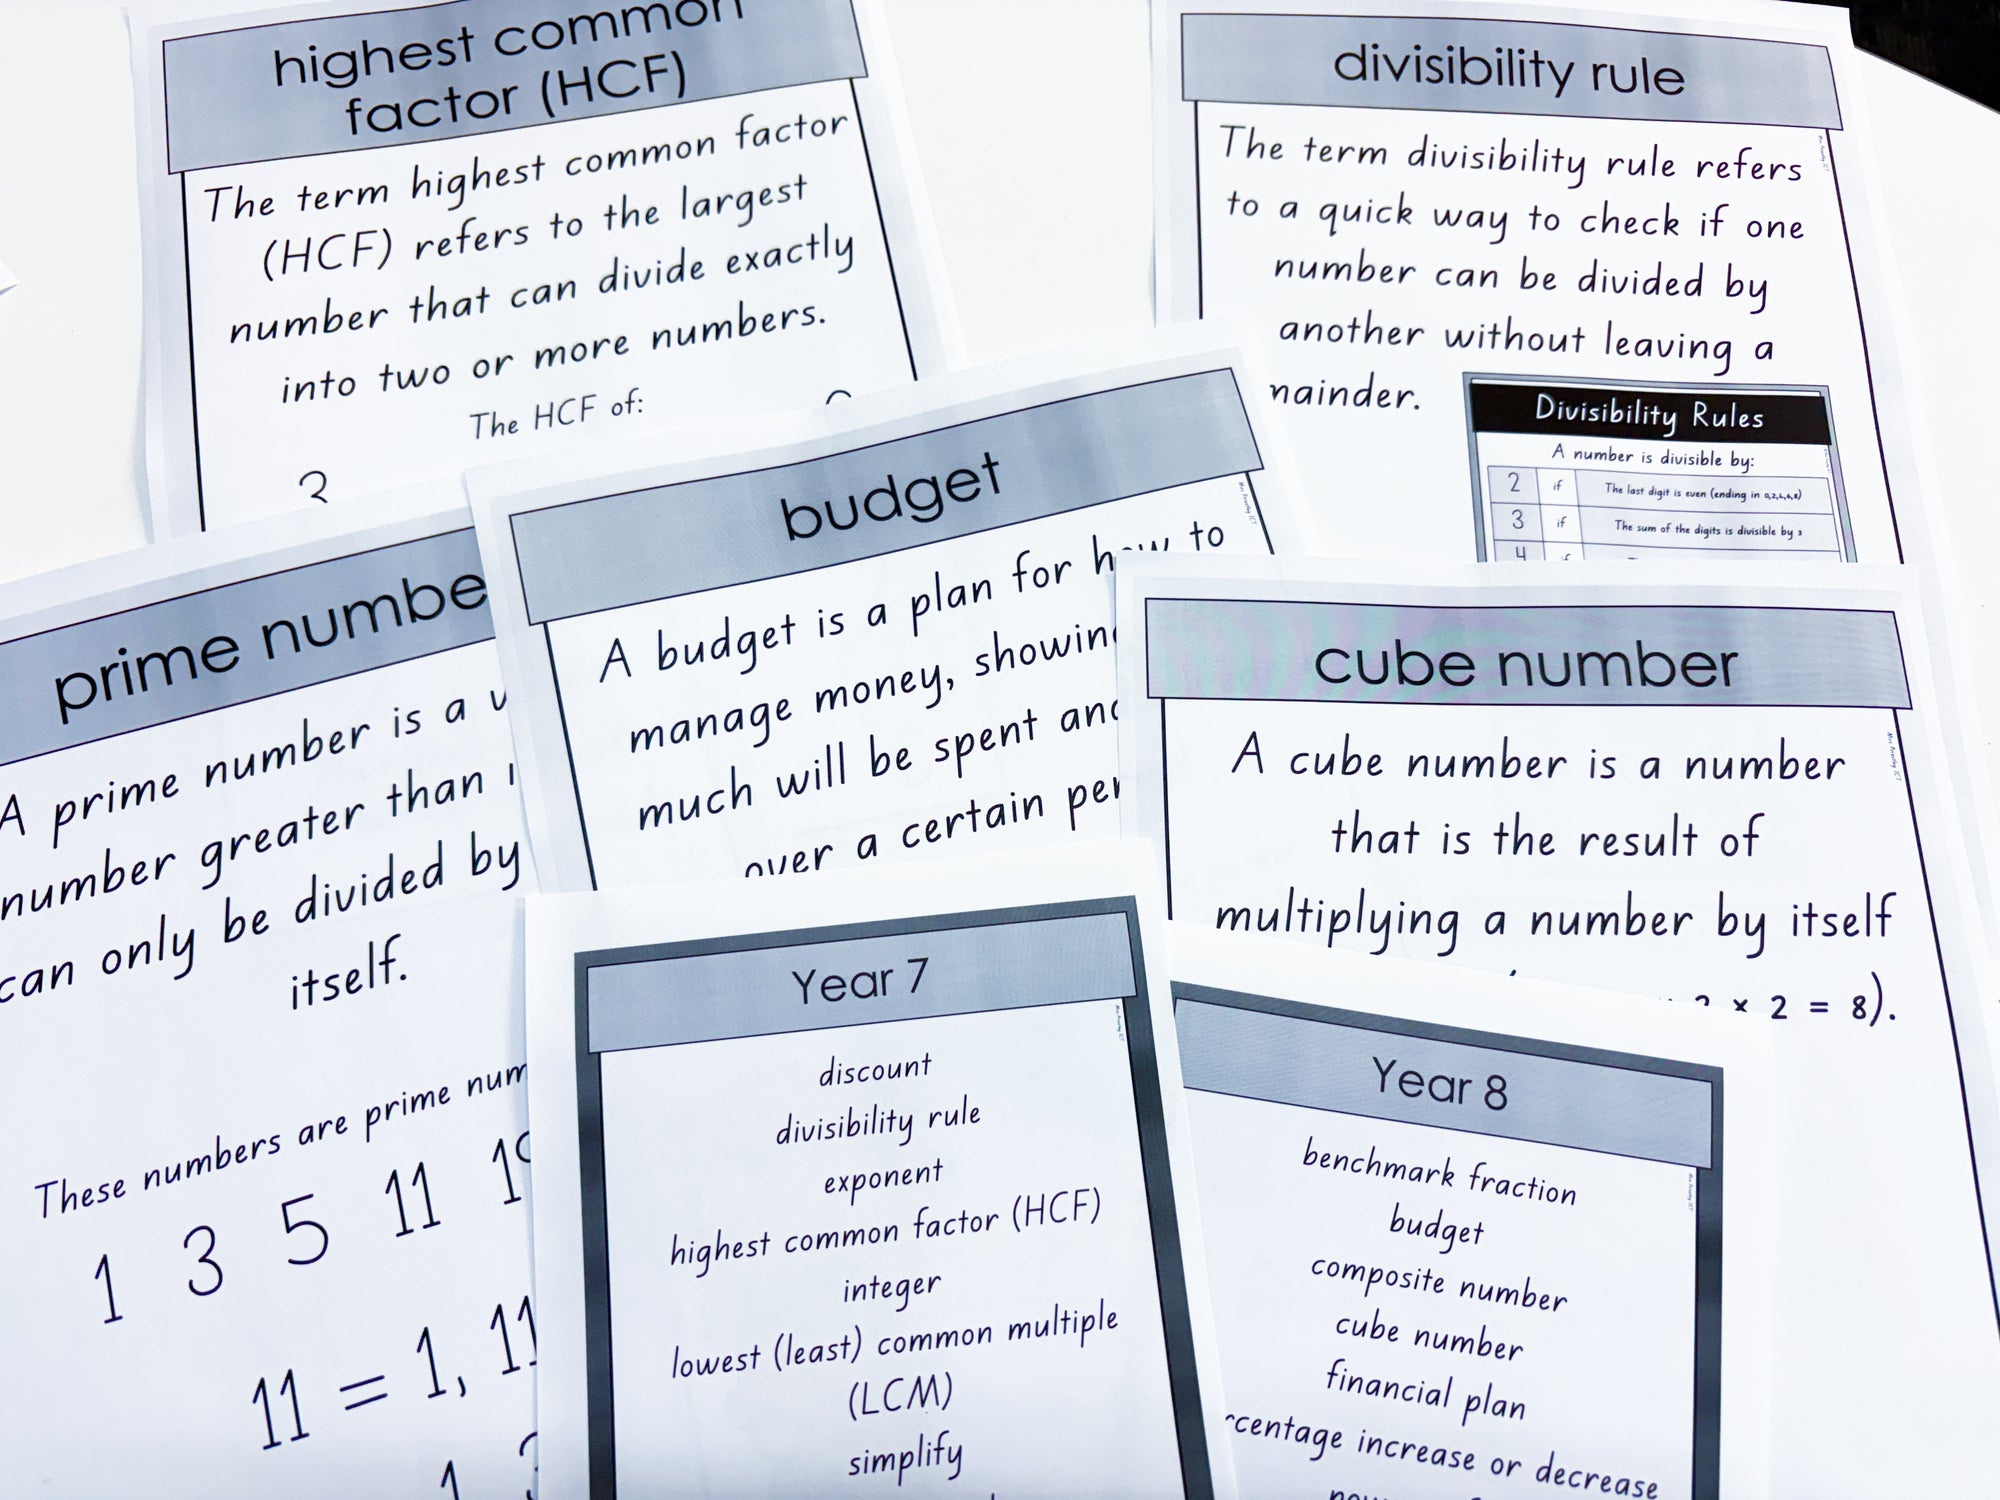 highest common
factor (HCF)
The term highest common factor
(HCF) refers to the largest
number that can divide exactly
into two or more numbers.
The HCF of:
divisibility rule
The term divisibility rule refers
to a quick way to check if one
number can be divided by
another without leaving a
mainder.
Divisibility Rules
A number is divisible by:
2 if The last digit is even (ending in 0,2,4,6,8)
3 if The sum of the digits is divisible by 3
4 if
budget
A budget is a plan for how to
manage money, showin
much will be spent and
over a certain per
prime numbe
A prime number is a
number greater than 1
can only be divided by
itself.
These numbers are prime num
1 3 5 11
11 = 1, 11
cube number
A cube number is a number
that is the result of
multiplying a number by itself
2 × 2 = 8).
Year 7
discount
divisibility rule
exponent
highest common factor (HCF)
integer
lowest (least) common multiple
(LCM)
simplify
Year 8
benchmark fraction
budget
composite number
cube number
financial plan
rcentage increase or decrease